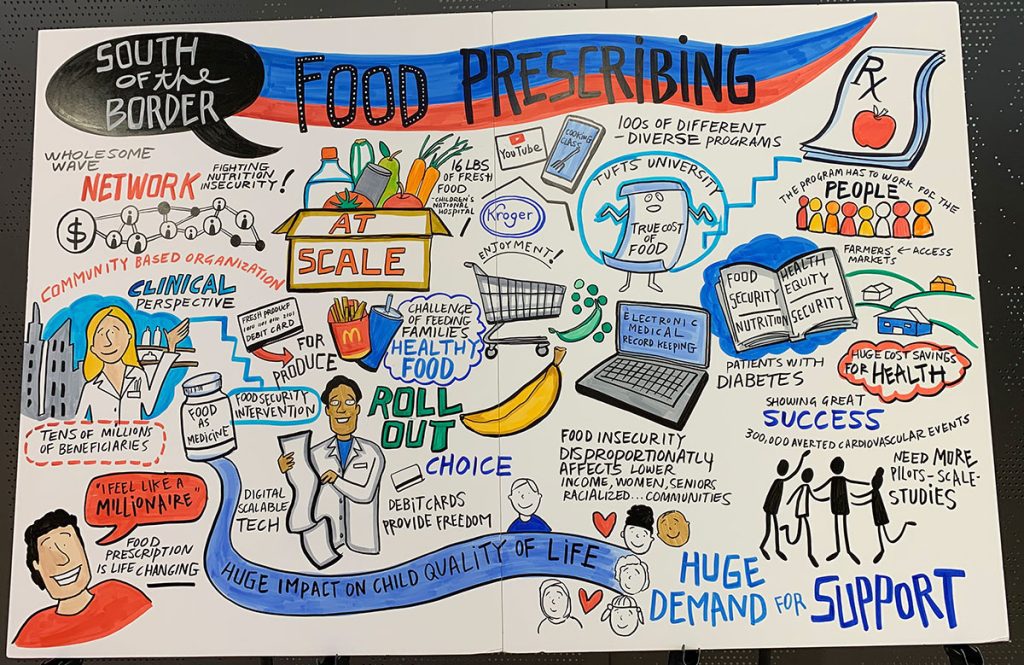 SOUTH
OF the
BORDER
FOOD PRESCRIBING
Rx
WHOLESOME
WAVE
NETWORK
FIGHTING
NUTRITION
INSECURITY!
$
COMMUNITY BASED ORGANIZATION
AT
SCALE
16 LBS
OF FRESH
FOOD
-CHILDREN'S
NATIONAL
HOSPITAL
YouTube
COOKING
CLASS
Kroger
ENJOYMENT!
100S OF DIFFERENT
-DIVERSE PROGRAMS
TUFTS UNIVERSITY
TRUE COST
OF
FOOD
THE PROGRAM HAS TO WORK FOR THE
PEOPLE
FARMERS' ← ACCESS
MARKETS
FOOD
SECURITY
NUTRITION
HEALTH
EQUITY
SECURITY
PATIENTS WITH
DIABETES
HUGE COST SAVINGS
FOR HEALTH
CLINICAL
PERSPECTIVE
TENS OF MILLIONS
OF BENEFICIARIES
FRESH PRODUCE
DEBIT CARD
FOR
PRODUCE
M
CHALLENGE
OF FEEDING
FAMILIES
HEALTHY
FOOD
ELECTRONIC
MEDICAL
RECORD KEEPING
FOOD
AS
MEDICINE
FOOD SECURITY
INTERVENTION
ROLL
OUT
CHOICE
DEBIT CARDS
PROVIDE FREEDOM
DIGITAL
SCALABLE
TECH
FOOD INSECURITY
DISPROPORTIONATLY
AFFECTS LOWER
INCOME, WOMEN, SENIORS
RACIALIZED... COMMUNITIES
SHOWING GREAT
SUCCESS
300,000 AVERTED CARDIOVASCULAR EVENTS
NEED MORE
PILOTS-SCALE-
STUDIES
"I FEEL LIKE A
MILLIONAIRE"
FOOD
PRESCRIPTION
IS LIFE CHANGING
HUGE IMPACT ON CHILD QUALITY OF LIFE
HUGE
DEMAND FOR SUPPORT